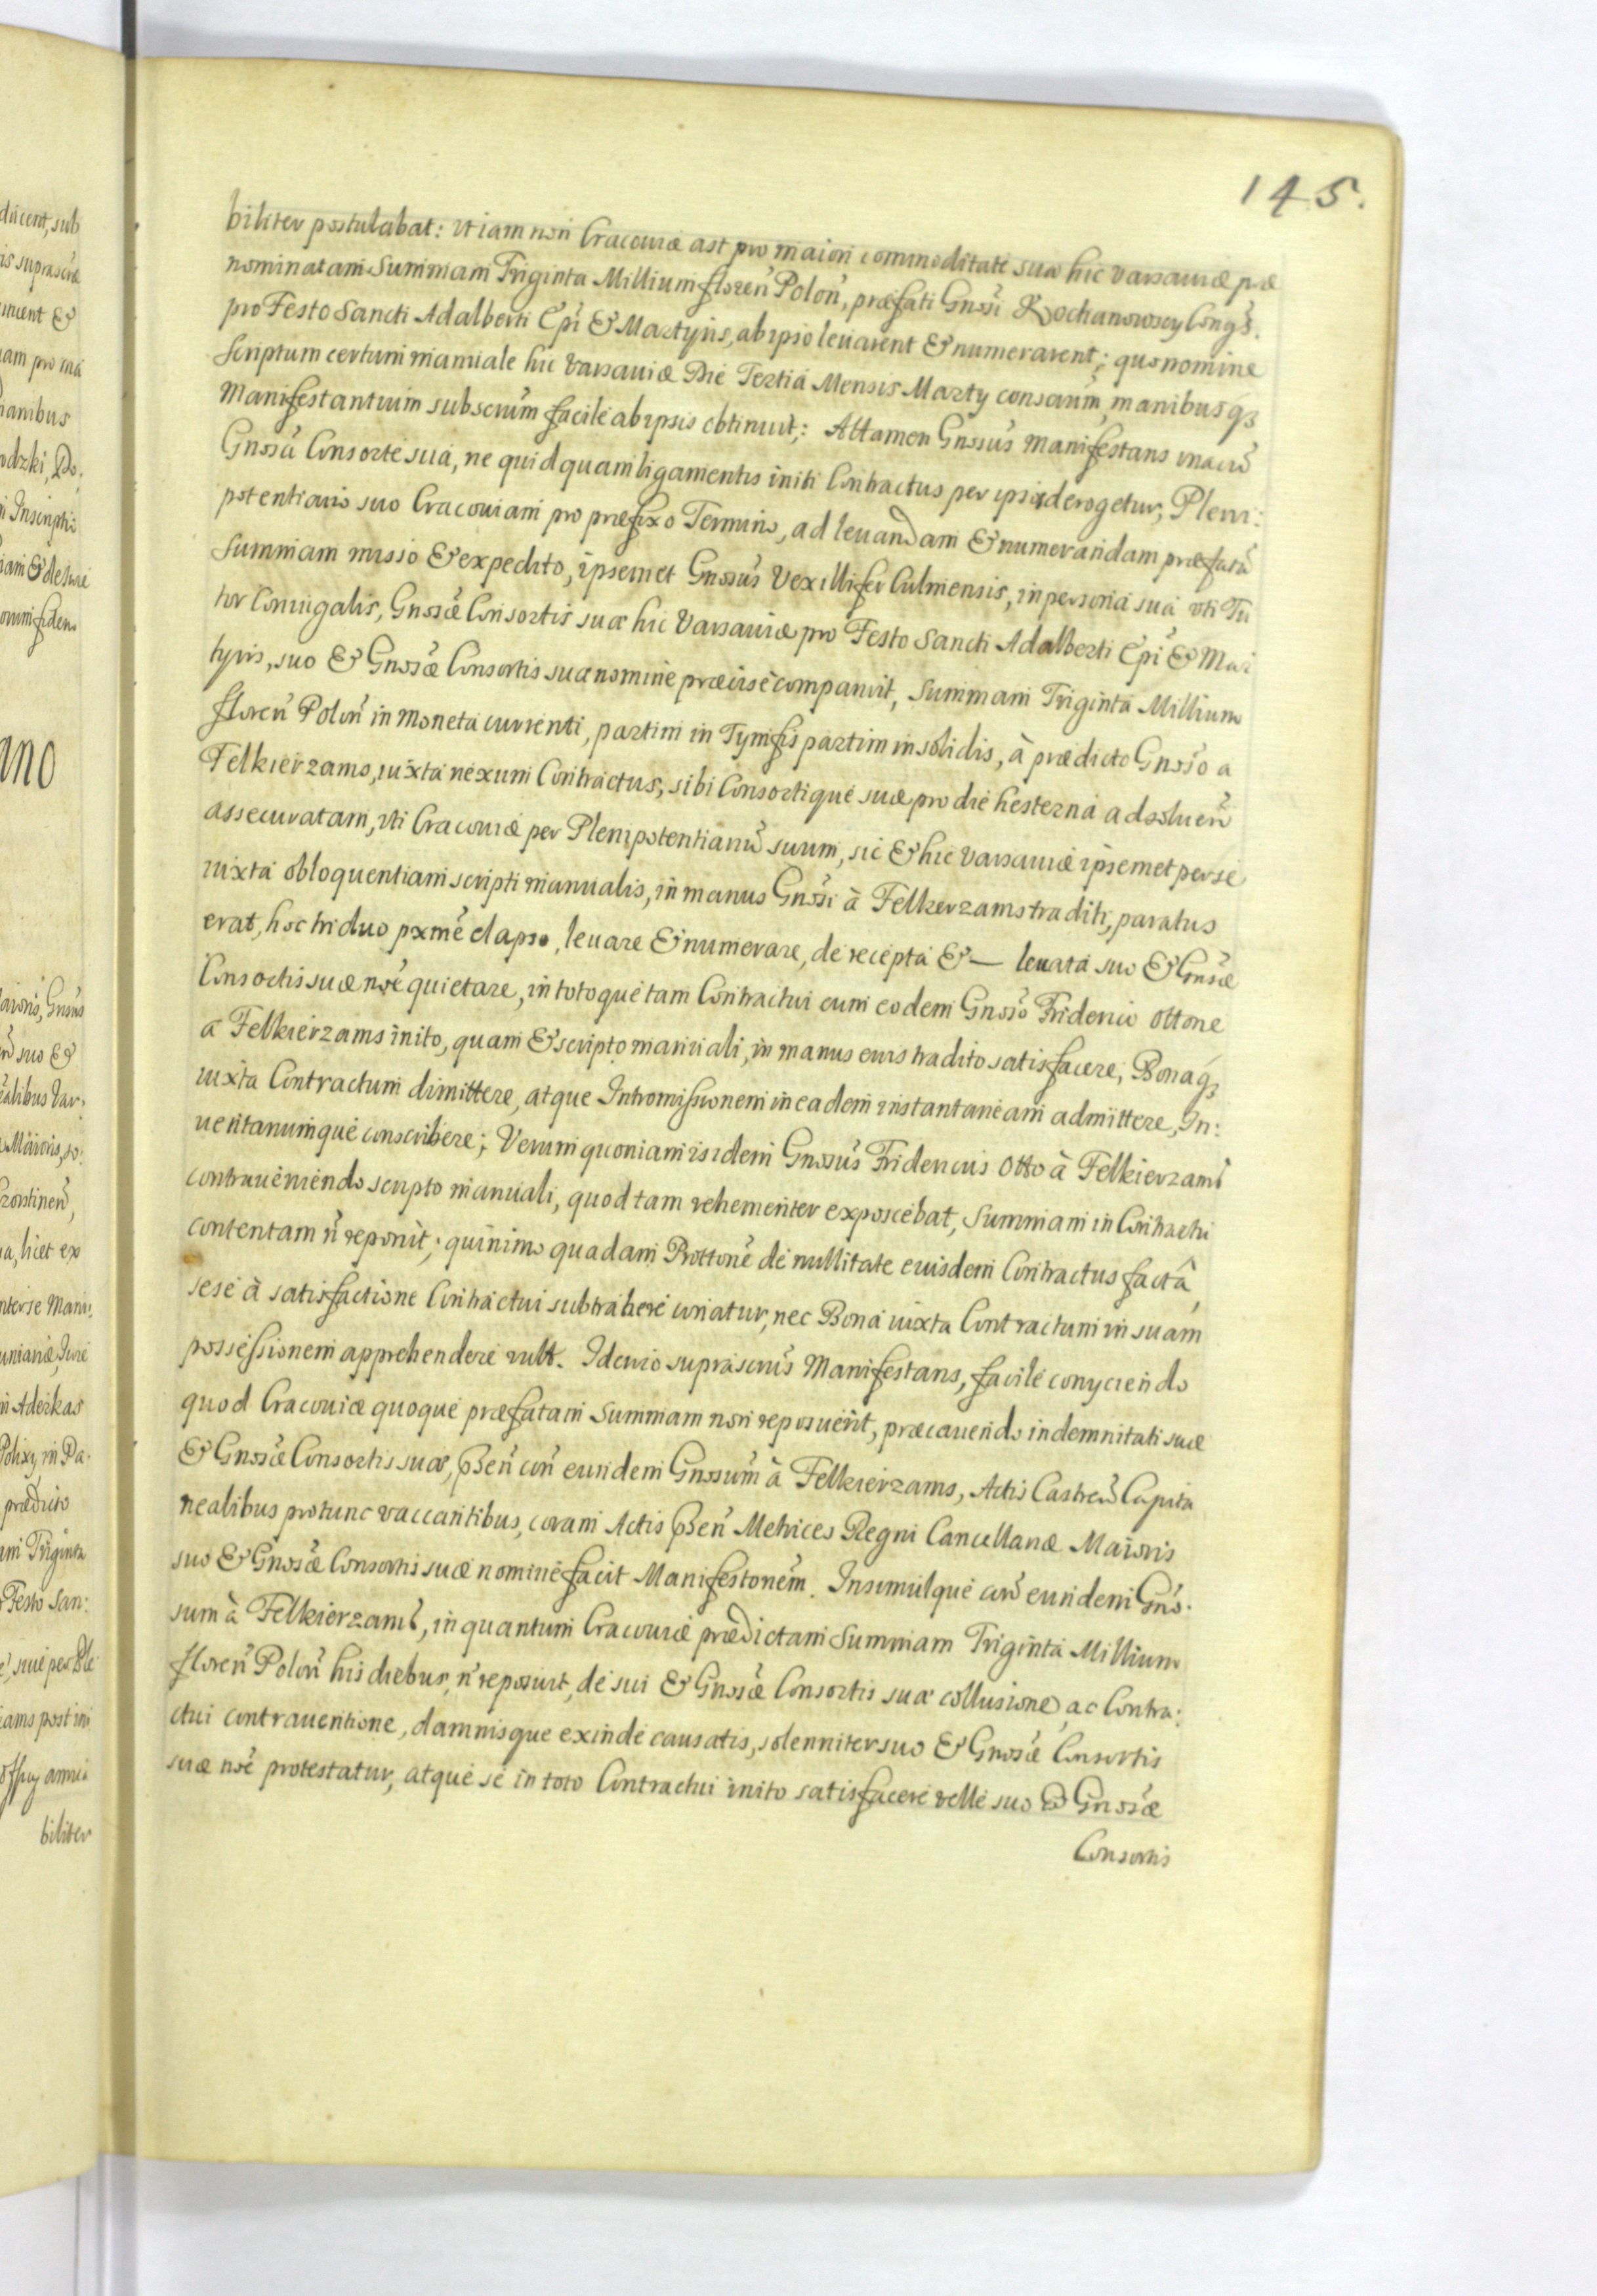 145.
biliter postulabat: ut iam non Cracouiæ ast pro maiori commoditate sua hic Varsauiæ præ
nominatam Summam Triginta Millium floreñ Poloñ, præfati Gnosi Kochanowscy Congs.
pro Festo Sancti Adalberti Epi & Martyris, ab ipso leuarent & numerarent; quo nomine
Scriptum certum manuale hic Varsauiæ Die Tertia Mensis Marty conscrum, manibusq3
Manifestantium subscrum facile ab ipsis obtinuit: Attamen Gnosus Manifestans una cũ
Gnosa Consorte sua, ne quidquam ligamentis initi Contractus per ipsũ derogetur, Pleni:
potentiario suo Cracouiam pro præfixo Termino, ad leuandam & numerandam præfatã
Summam misso & expedito, ipsemet Gnosus Vexillifer Culmensis, in persona sua, uti Tu
tor Coniugalis, Gnosæ Consortis suæ hic Varsauiæ pro Festo Sancti Adalberti Epi & Mar
tyris, suo & Gnosæ Consortis suæ nomine præcise comparuit, Summam Triginta Millium
floreñ Poloñ in moneta currenti, partim in Tymfis partim in solidis, à prædicto Gnoso a
Felkierzams, iuxta nexum Contractus, sibi Consortique suæ pro die hesterna ad soluẽñ
assecuratam, uti Cracouiæ per Plenipotentiariũ suum, sic & hic Varsauiæ ipsemet per se
iuxta obloquentiam scripti manualis, in manus Gnosi à Felkerzams traditi, paratus
erat, hoc triduo pxme elapso, leuare & numerare, de recepta & — leuata suo & Gnsæ
Consortis suæ noe quietare, in totoque tam Contractui cum eodem Gnoso Friderico Ottone
a Felkierzams inito, quam & scripto manuali, in manus eius tradito satisfacere; Bonaq3
iuxta Contractum dimittere, atque Intromissionem in eadem instantaneam admittere, In:
uentariumque conscribere; Verum quoniam isidem Gnosus Fridericus Otto à Felkierzams
contraueniendo scripto manuali, quod tam vehementer exposcebat, Summam in Contractu
contentam ñ reponit; quinimo quadam Prottone de nullitate euisdem Contractus facta,
sese à satisfactione Contractui subtrahere conatur, nec Bona iuxta Contractum in suam
possessionem apprehendere vult. Idcirco suprascrus Manifestans, facile conyciendo
quod Cracouiæ quoque præfatam Summam non reposuerit, præcauendo indemnitati suæ
& Gnosæ Consortis suæ, pñ con eundem Gnosum à Felkierzams, Actis Castreñ Capita
nealibus protunc vaccantibus, coram Actis pñ Metrices Regni Cancellariæ Maioris
suo & Gnosæ Consortis suæ nomine facit Manifestonem. Insimulque con eundem Gnō.
sum à Felkierzams, in quantum Cracouiæ prædictam Summam Triginta Millium
floreñ Poloñ his diebus, ñ reposuit, de sui & Gnosæ Consortis suæ collusione, ac Contra:
ctui contrauentione, damnisque exinde causatis, solenniter suo & Gnosæ Consortis
suæ noe protestatur, atque se in toto Contractui inito satisfacere velle suo & Gnosæ
Consortis